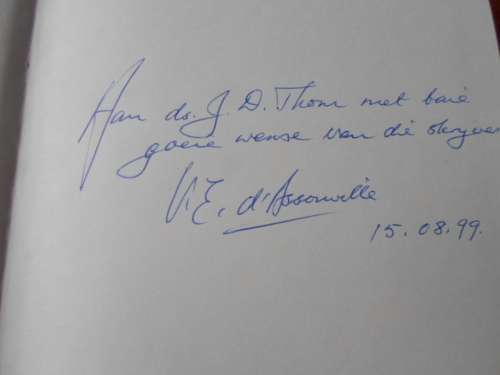 Aan ds. J. D. Thom met baie
goeie wense van die skrywer
V.E. d'Assonville
15.08.99.